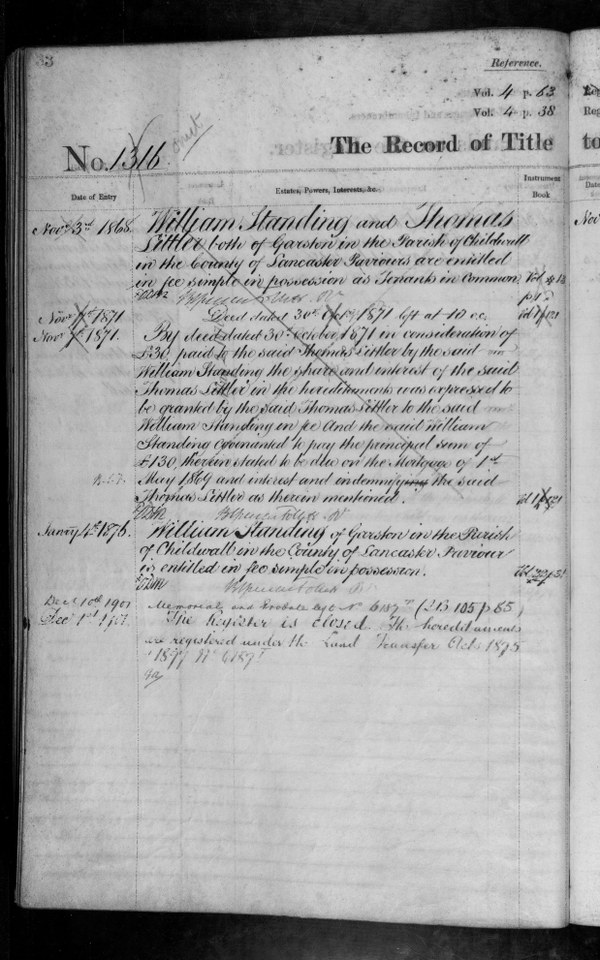 Reference.
Vol. 4 p. 63
Vol. 4 p. 38
No. 1316
The Record of Title
Date of Entry
Estates, Powers, Interests, &c.
Instrument
Book
Novr 3rd 1868. William Standing and Thomas
Littler both of Garston in the Parish of Childwall
in the County of Lancaster Paviours are entitled
in fee simple in possession as Tenants in Common.
Novr 1871 Deed dated 30th 1871 left at 10 o.c.
Novr 1871. By deed dated 30th October 1871 in consideration of
£30 paid to the said Thomas Littler by the said
William Standing the share and interest of the said
Thomas Littler in the hereditaments was expressed to
be granted by the said Thomas Littler to the said
William Standing in fee And the said William
Standing covenanted to pay the principal sum of
£130, therein stated to be due on the Mortgage of 1st
May 1869 and interest and indemnifying the said
Thomas Littler as therein mentioned.
Janry 4th 1876. William Standing of Garston in the Parish
of Childwall in the County of Lancaster Paviour
is entitled in fee simple in possession.
Dec 10th 1901 Memorial and Probate No 6187 (LB 105 p 85)
Dec 1901. The Register is closed. The hereditaments
are registered under the Land Transfer Acts 1875
& 1897 No 6187